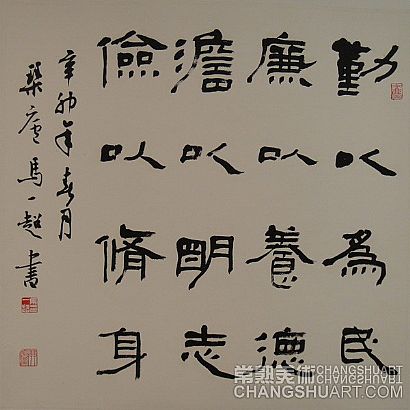 勤以為民
廉以養德
澹以明志
儉以脩身
辛卯年春月
琹廬馬一超書
常熟美術 CHANGSHUART
CHANGSHUART.COM